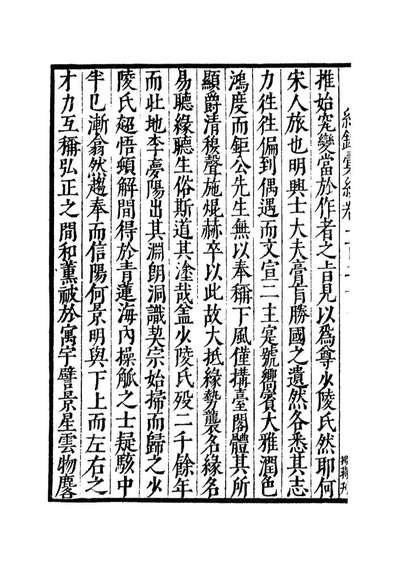 推始究變當於作者之㫖見以為尊少陵氏然耶何
宋人旅也明興士大夫膏肓勝國之遺然各悉其志
力徃徃偏到偶遇而文宣二主寔號嚮賞大雅潤色
鴻度而鉅公先生無以奉稱下風僅搆臺閣體其所
顯爵清穆聲施焜赫卒以此故大抵緣勢襲名緣名
易聽緣聽生俗斯道其塗哉盖少陵氏歿二千餘年
而北地李夢陽出其淵朗洞識契宗始掃而歸之少
陵氏超悟頓解間得於青蓮海內操觚之士疑駭中
半已漸翕然趨奉而信陽何景明與丁上而左右之
才力互稱弘正之間和薰祓於寓宇譬景星雲物麐